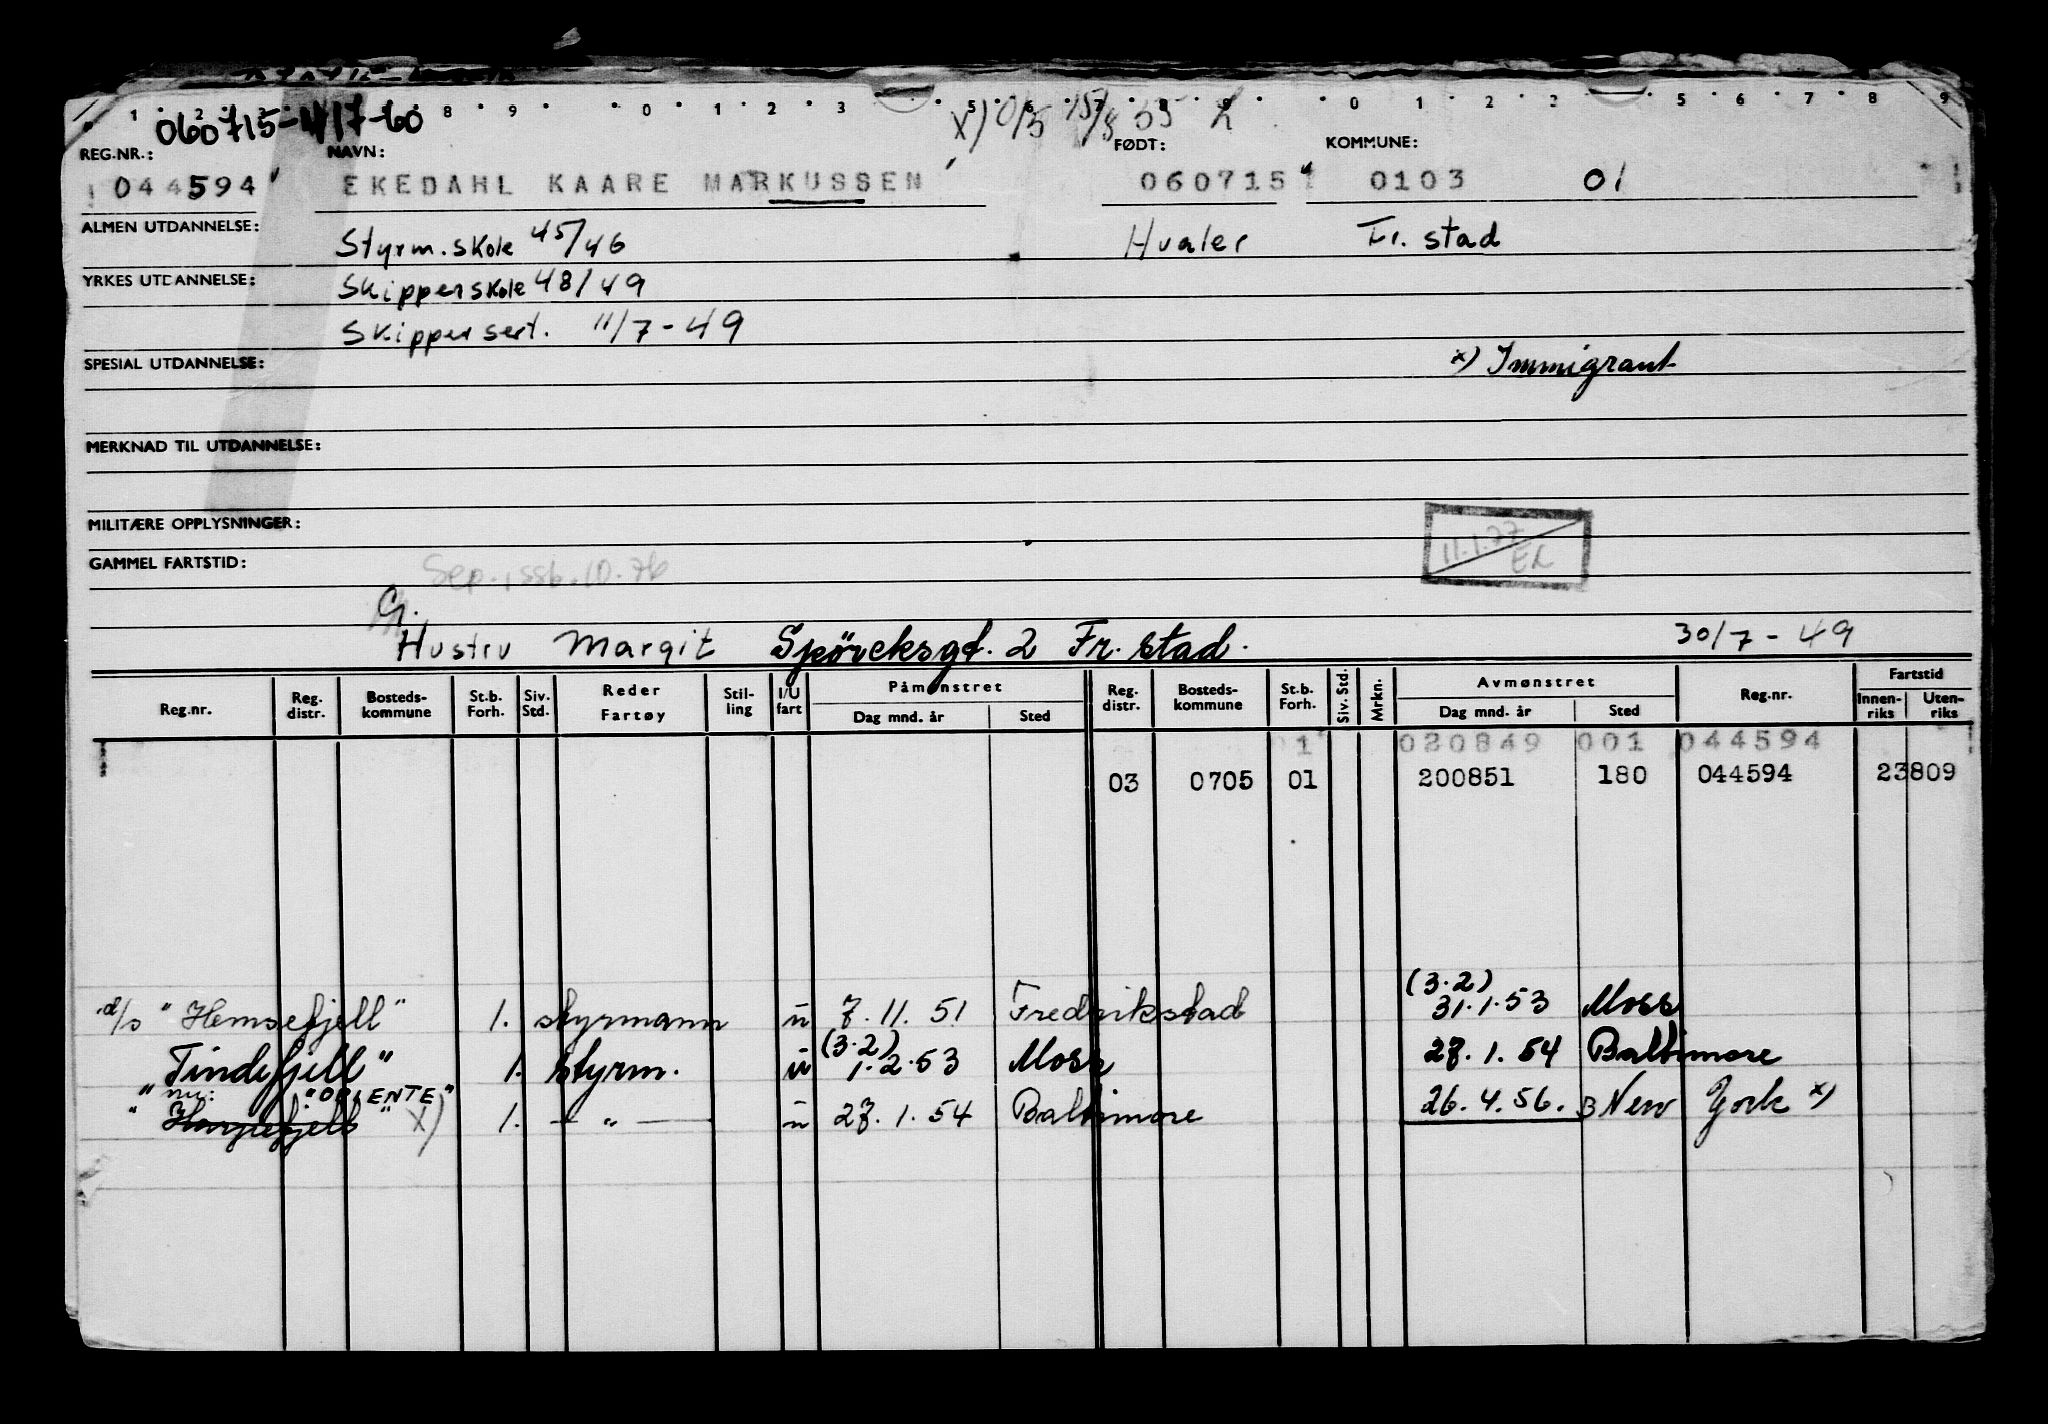 1 2 8 9 0 1 2 3 5 6 7 8 9 0 1 2 2 5 6 7 8 9
060715-417-60
REG.NR.: NAVN: FØDT: KOMMUNE:
044594 EKEDAHL KAARE MARKUSSEN 060715 0103 01
ALMEN UTDANNELSE: Styrm.skole 45/46 Hvaler Fr. stad
YRKES UTDANNELSE: Skipperskole 48/49
Skippersert. 11/7-49
SPESIAL UTDANNELSE: x) Immigrant
MERKNAD TIL UTDANNELSE:
MILITÆRE OPPLYSNINGER: 11.1.77
EL
GAMMEL FARTSTID: Sep.,ssb.10.76
G.
Hustru Margit Spörcksgt. 2 Fr. stad. 30/7-49
Reg.nr. Reg. distr. Bosteds- kommune St.b. Forh. Siv. Std. Reder Fartøy Stil- ling I/U fart Påmønstret Dag mnd. år Sted Reg. distr. Bosteds- kommune St.b. Forh. Siv. Std. Mrkn. Avmønstret Dag mnd. år Sted Reg.nr. Fartstid Innen- riks Uten- riks
1 020849 001 044594
03 0705 01 200851 180 044594 23809
(3.2)
d/s "Hemsefjell" 1. styrmann u 7.11.51 Fredrikstad 31.1.53 Moss
(3.2)
"Tindefjell" 1. styrm. u 1.2.53 Moss 27.1.54 Baltimore
nu: "ORIENTE"
"Harjefjell" x) 1. — " — u 27.1.54 Baltimore 26.4.56. New York x)